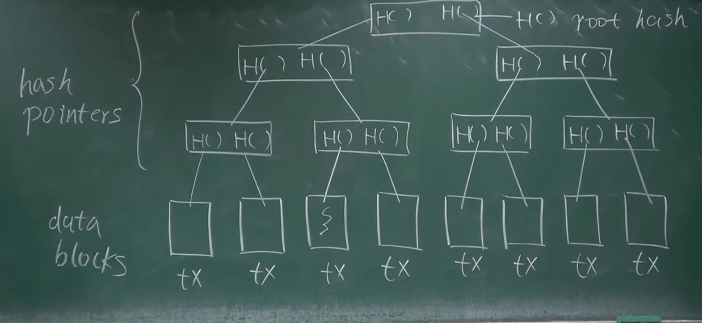 H( ) H( H( ) root hash
H( ) H( ) H( ) H( )
hash
pointers
H( ) H( ) H( ) H( ) H( ) H( ) H( ) H( )
data
blocks
tx tx tx tx tx tx tx tx